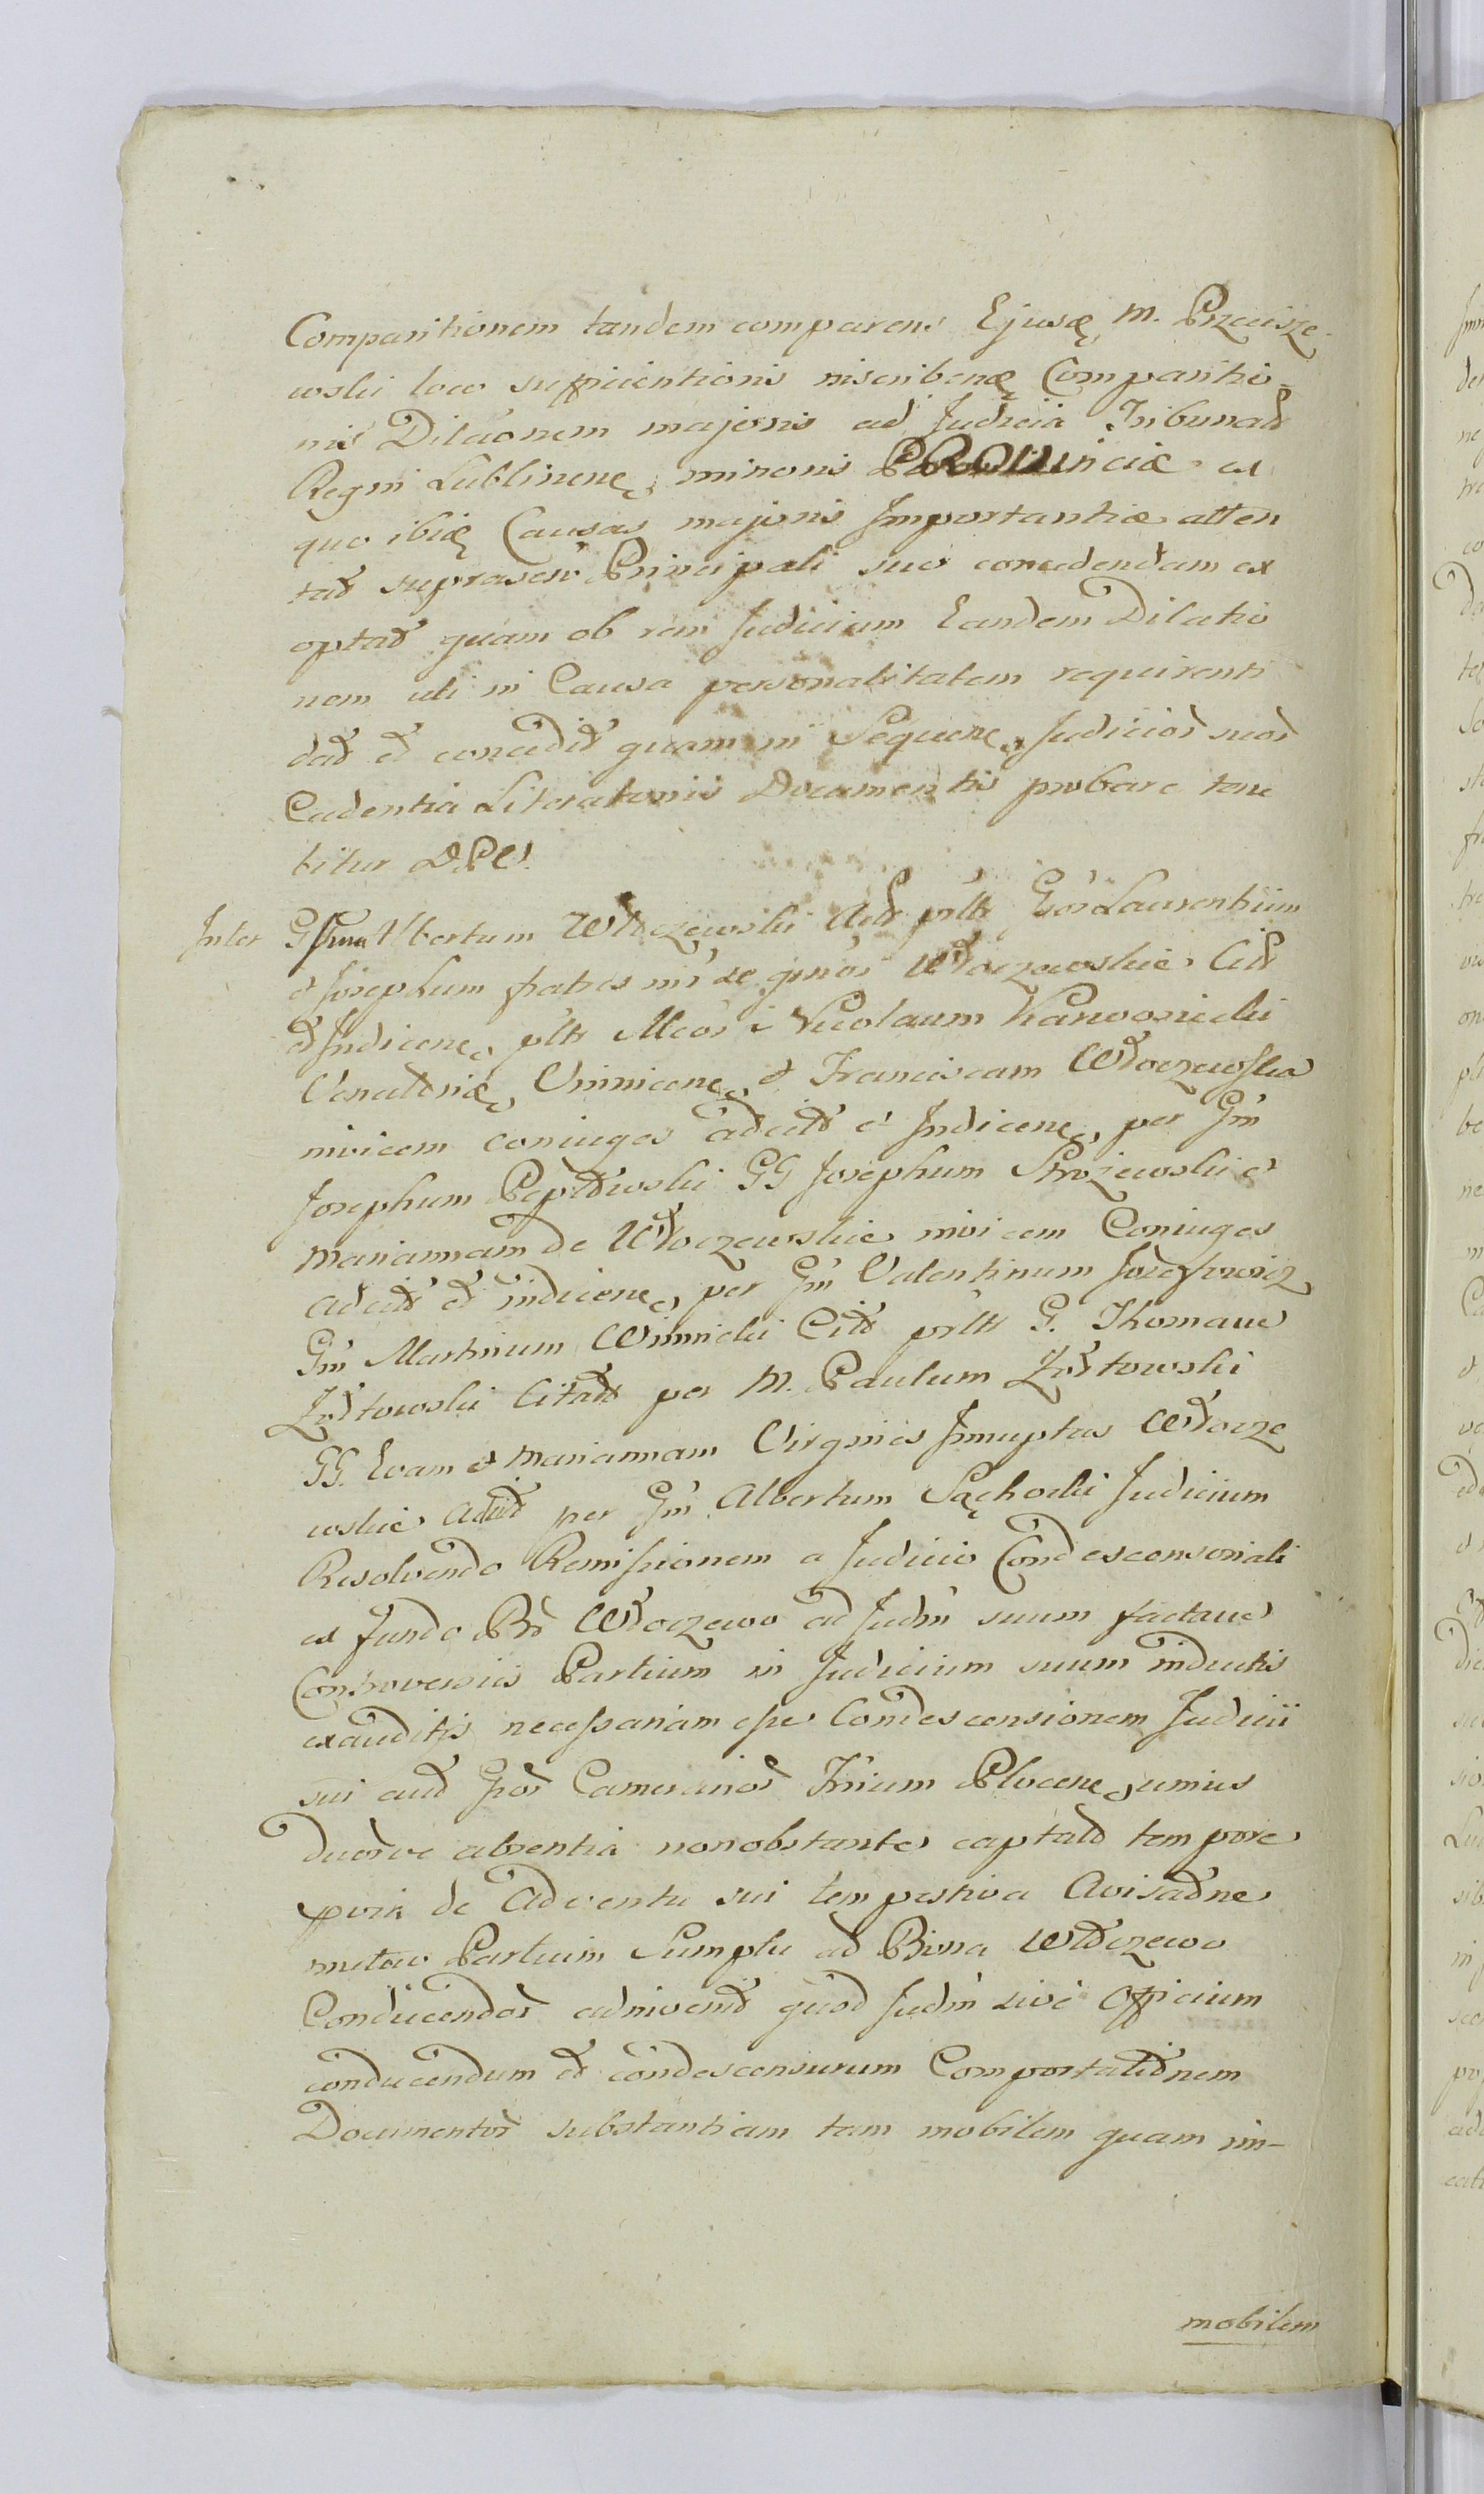 Comparitionem tandem comparens Ejusdę M. Przecisze-
wski loco sufficientioris inscribendę Comparitio-
nis Dilaōnem majoris ad Judicia Tribunał
Regni Lublinenę, minoris PROuinciæ ex
quo ibidę Causas majoris Importantiæ atten
tat suprascr Principali suo concedendam ex
optat quam ob rem Judicium Eandem Dilatio
nem uti in Causa personalitatem requirenti
dat et concedit quam in Sequenę, Judicior suor
Cadentia Literatoriis Documentis probare tene
bitur D.P.C.
Inter Gsum Albertum Włoczewski Act prlt Gōs Laurentium
et Josephum fratres inr se gnōs Włoczewskie Citt
et Indicenę, plt Mcōs Nicolaum Karwosiecki
Venatōriæ, Vinnicenę, et Franciscam Włoczewska
invicem coniuges adcitt et Indicenę, per Gm
Josephum Pepłowski GG Josephum Strozewski et
Mariannam de Włoczewskie invicem Coniuges
adcitt et indicenę, per Gm Valentinum Jozefowicz
Gm Martinum Winnicki Citt prlt G. Thomam
Zołtowski Citatt per M. Paulum Zołtowski
GG. Evam et Mariannam Virgines Innuptas Włocze
wskie adcitt per Gm Albertum Sąchocki Judicium
Resolvendo Remissionem a Judicio Condescensoriali
ex fundo Bō Włoczewo ad Judm suum factam
Controversiis Partium in Judicium suum inductis
exauditis necessariam esse Condescensionem Judicii
sui aut Gōr Camerarior Trium Plocenę, unius
Duorve absentia non obstante captato tempore
de Adventu sui tempestiva Avisatōne
mutuo Partium Sumptu ad Bona Włoczewo
Conducendor adinvenit quod Judm sive Officium
conducendum et condescensurum Comportatiōnem
Documentor substantiam tam mobilem quam im-
mobilem